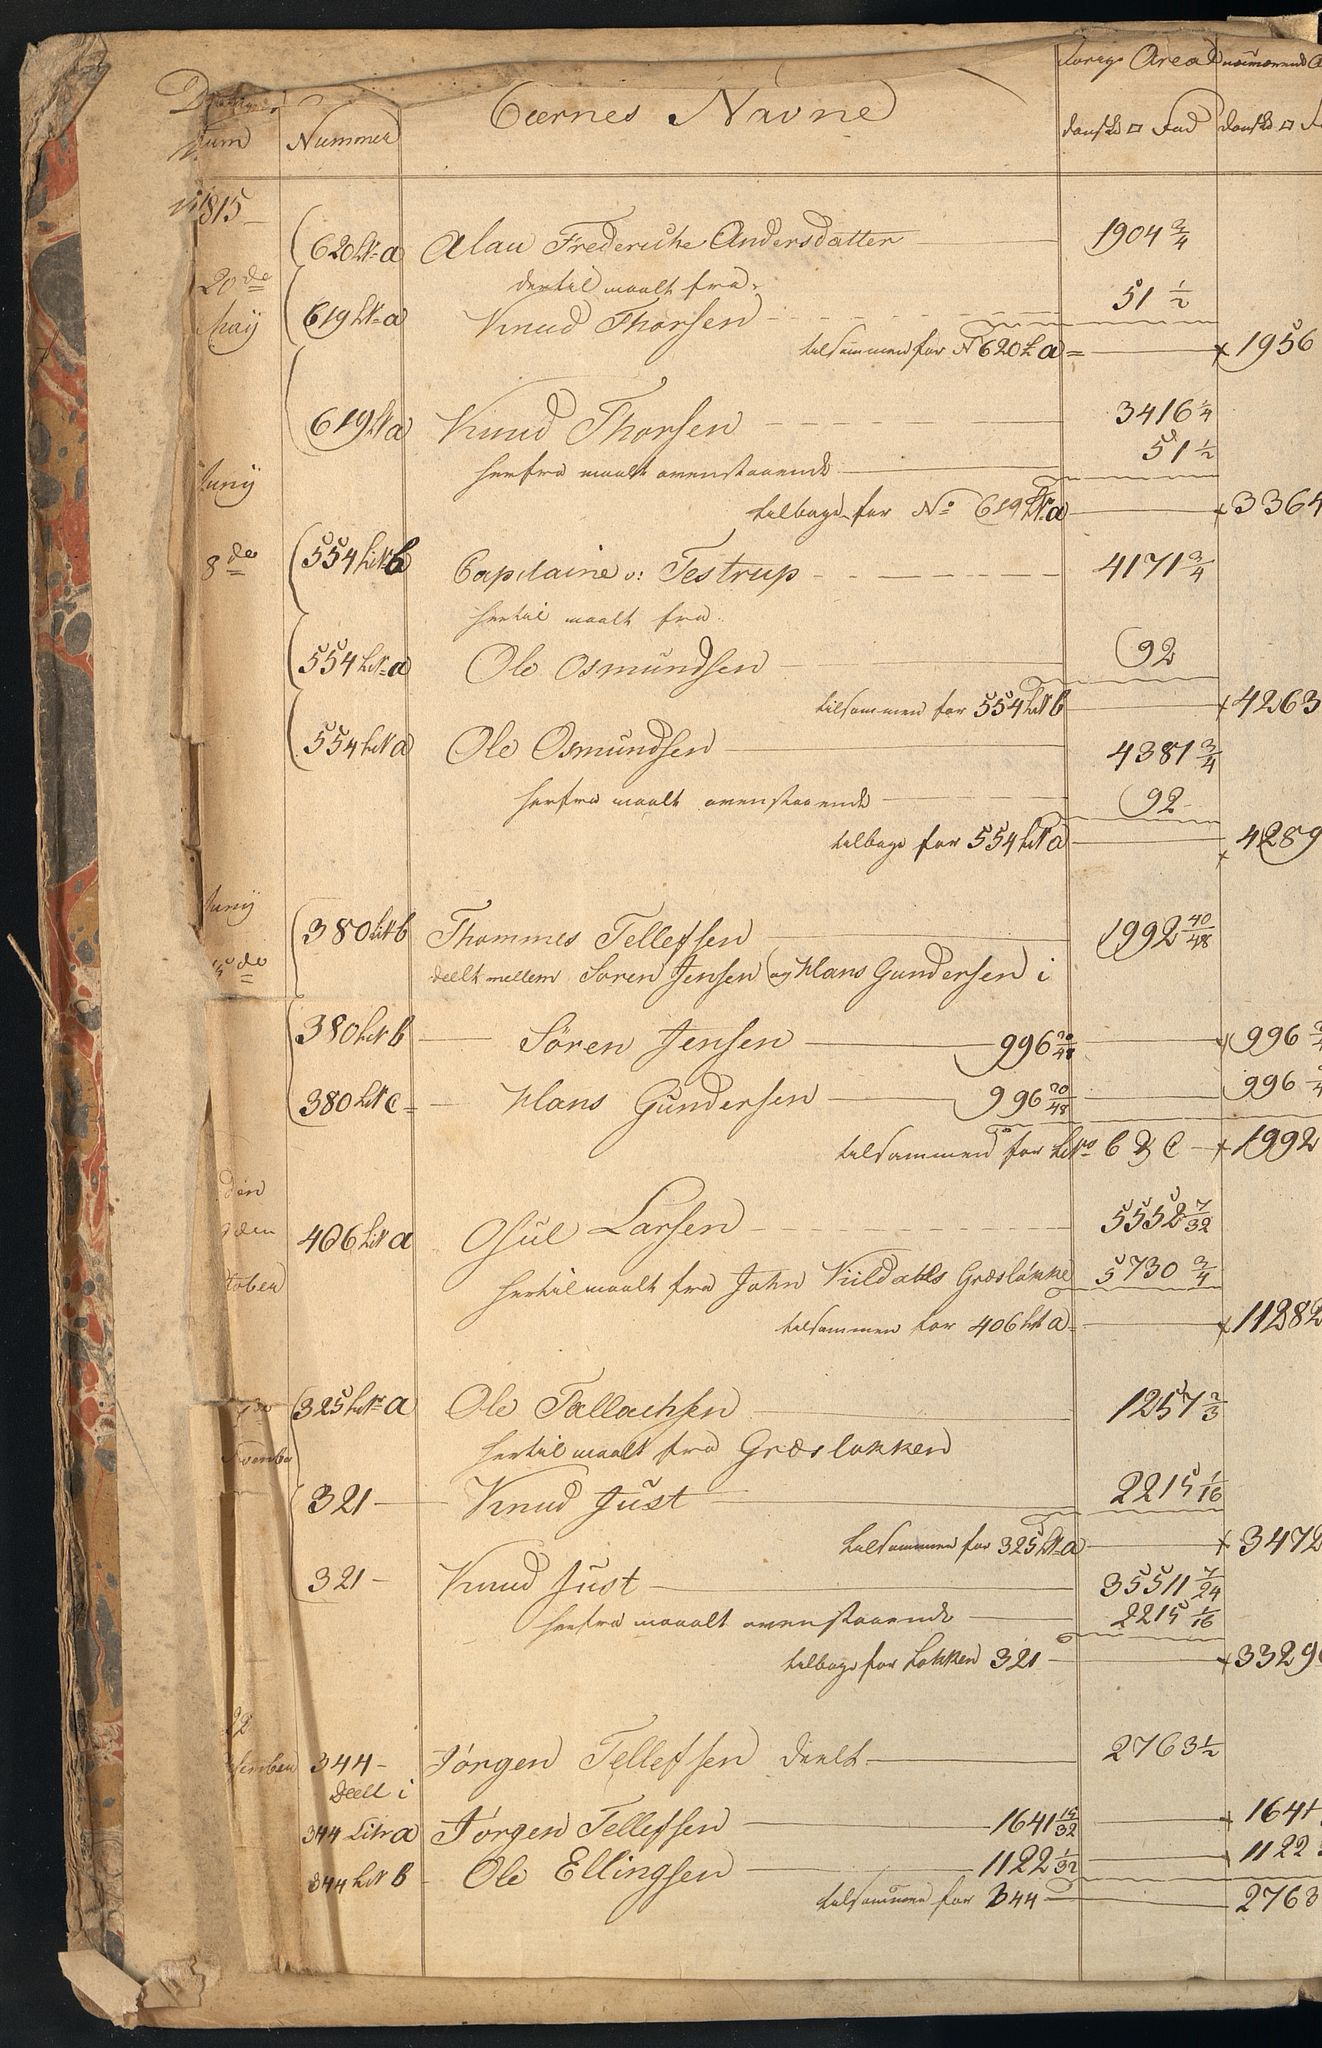 forrige Area nuværende
Datum Nummer Eiernes Navne danske □ Fod danske □
1815
620 Litr a Alau Frederiche Andersdatter 1904 3/4
20de dertil maalt fra
May 619 Litr a Knud Thorsen 51 1/2
tilsammen for N 620 L a = x 1956
619 Litr a Knud Thorsen 3416 1/4
herfra maalt ovenstaaende 51 1/2
Juny
tilbage for No 619 Litr a x 3364
8de 554 Litr b Capitaine v: Testrup 4171 3/4
hertil maalt fra
554 Litr a Ole Osmundsen 92
tilsammen for 554 Litr b x 4263
554 Litr a Ole Osmundsen 4381 3/4
herfra maalt ovenstaaende 92
tilbage for 554 Litr a x 4289
Juny
380 Litr b Thommes Tellefsen 1992 40/48
15de deelt mellem Søren Jensen og Hans Gundersen i
380 Litr b Søren Jensen 996 20/48 x 996
380 Litr c Hans Gundersen 996 20/48 996
tilsammen for Litr b & c x 1992
den
406 Litr a Gul Larsen 5552 7/32
tober hertil maalt fra John Kiildahls Græsløkke 5730 3/4
tilsammen for 406 Lit a x 11282
325 Litr a Ole Tallachsen 1257 2/3
vember hertil maalt fra Græsløkken
321 Knud Just 2215 1/16
tilsammen for 325 Lit a x 3472
321 Knud Just 35511 7/24
herfra maalt ovenstaaende 2215 1/16
tilbage for Løkken 321 x 3329
22
cember 344 Jørgen Tellefsen deelt 2763 1/2
Deelt i
344 Litr a Jørgen Tellefsen 1641 15/32 x 1641
344 Litr b Ole Ellingsen 1122 1/32 x 1122
tilsammen for 344 2763